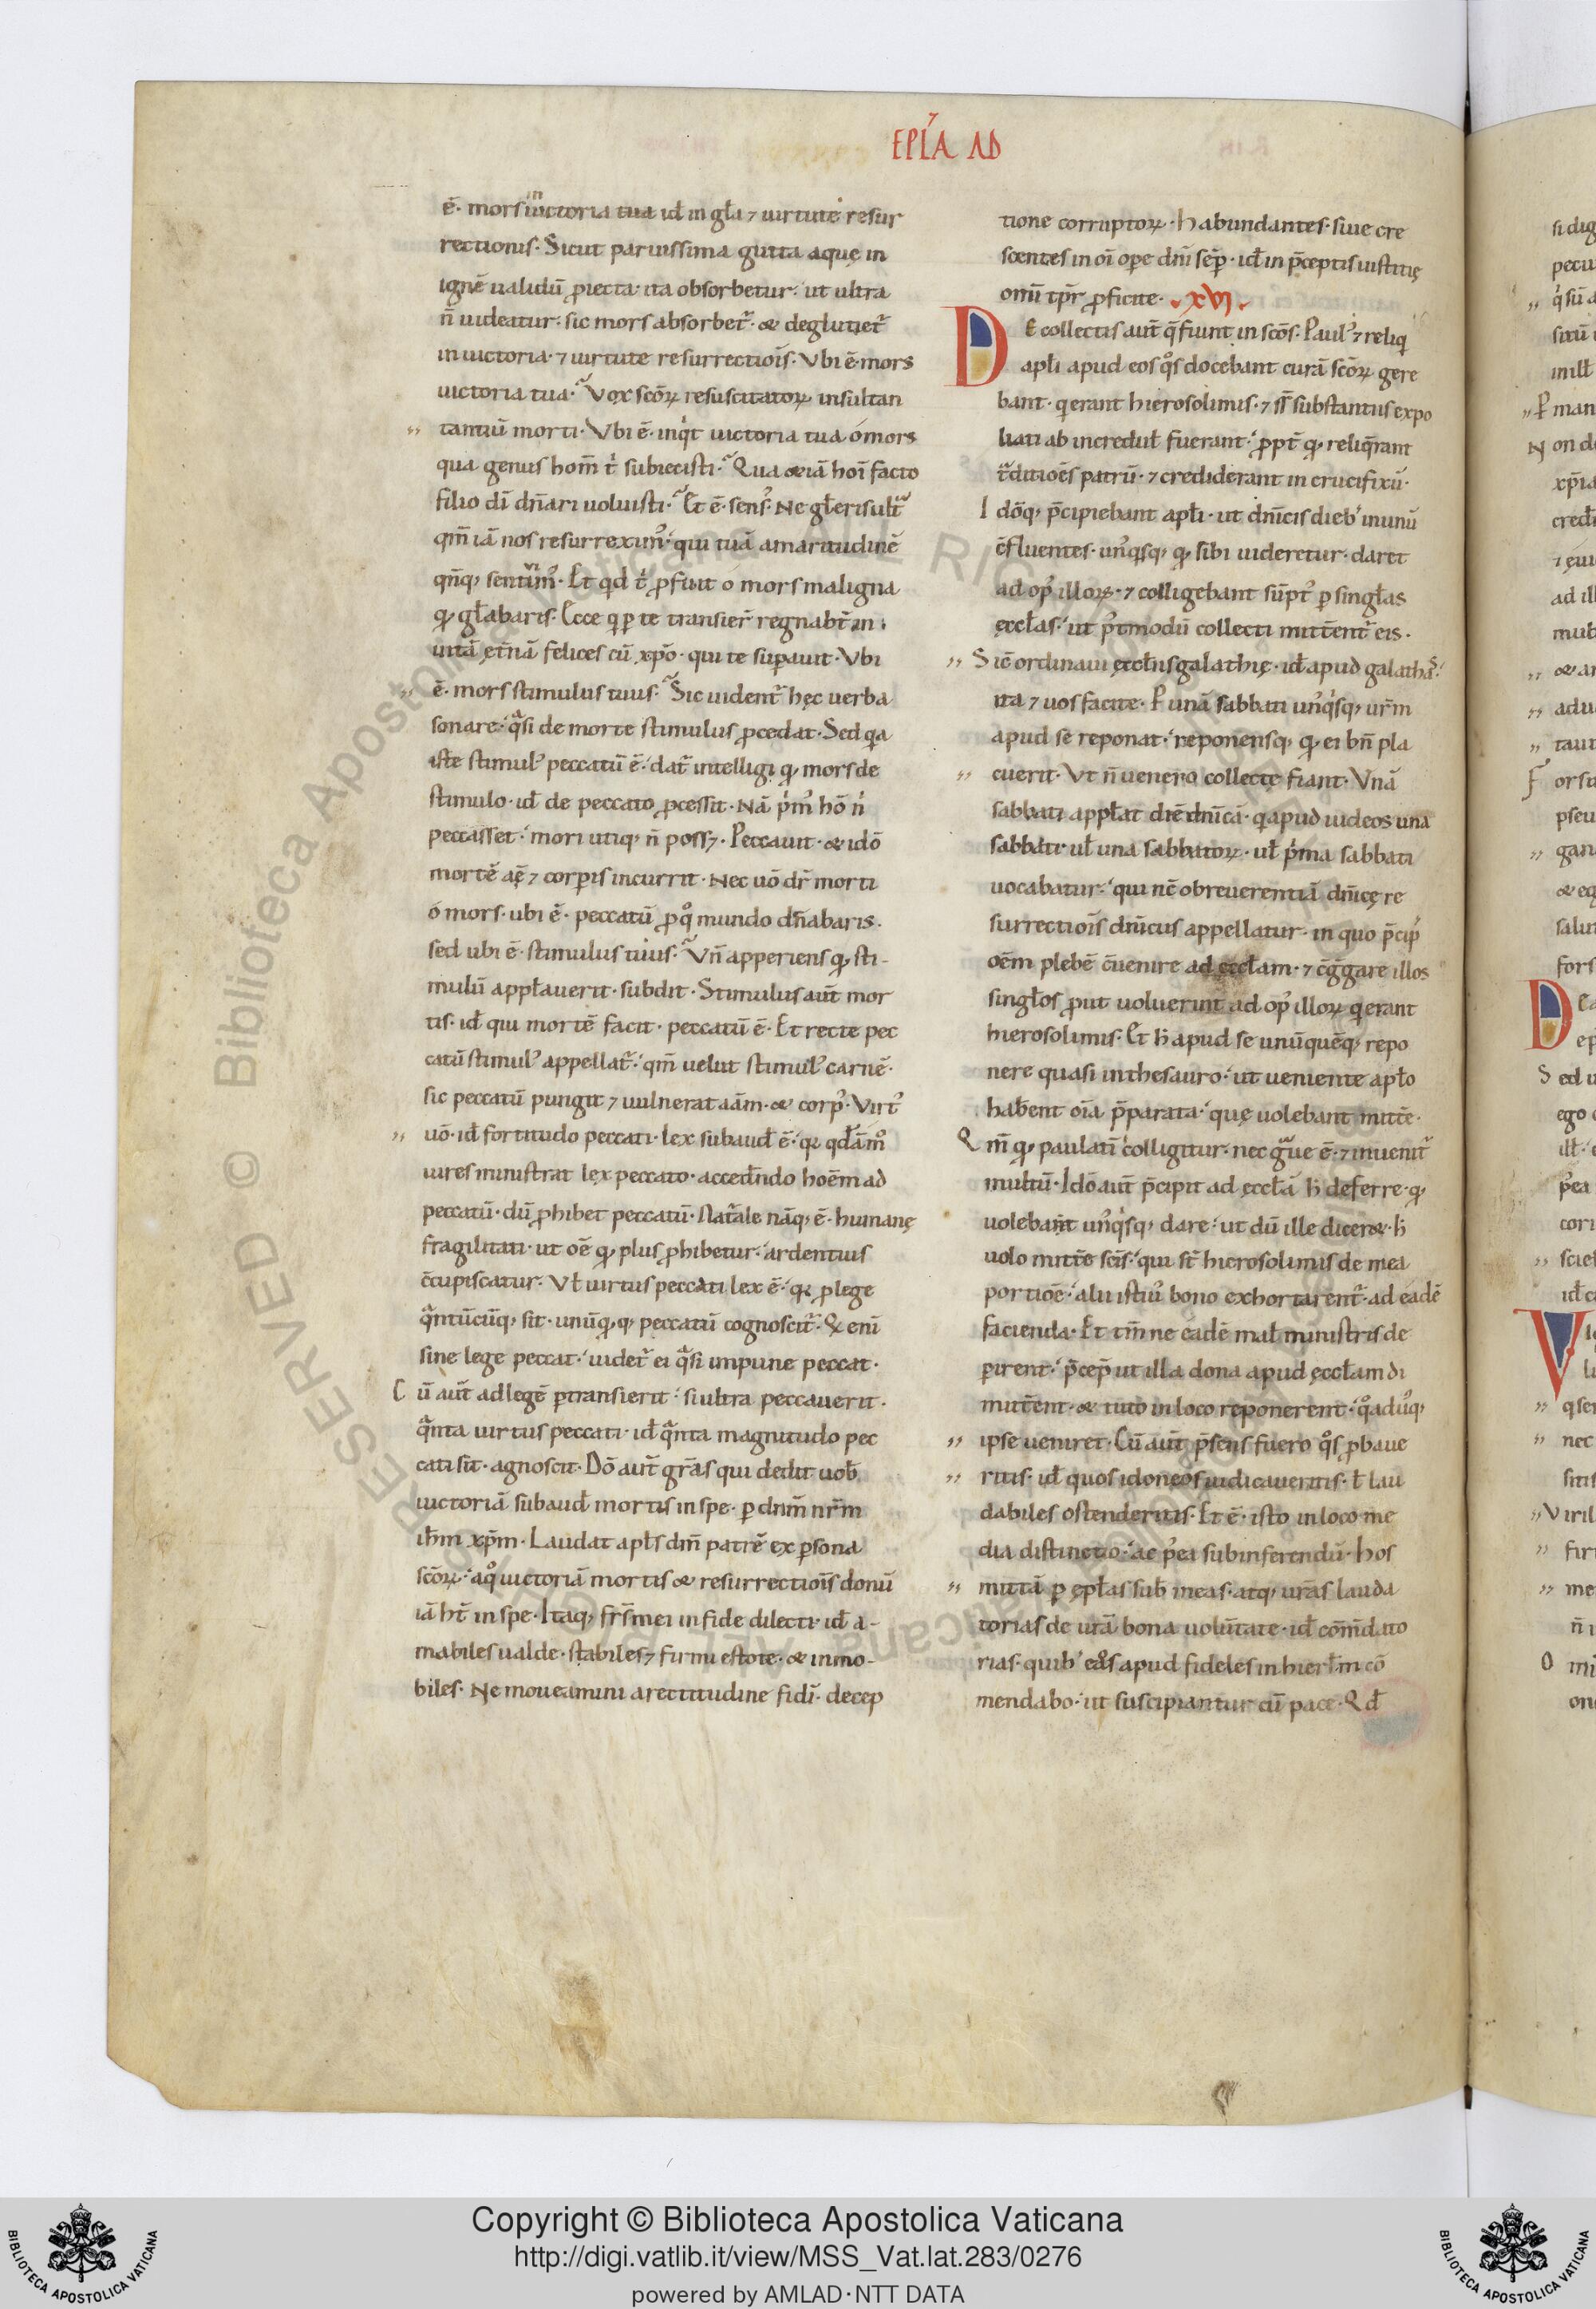 EPL̄A AD
ē· mors in uictoria tua id̄ in gl̄a ⁊ uirtute resur
rectionis· Sicut paruissima gutta aquę in
ignē ualidū ꝓiecta· ita obsorbetur· ut ultra
n̄ uideatur· sic mors absorbet̄· & deglutiet̄
in uictoria· ⁊ uirtute resurrectiōis· Vbi ē· mors
uictoria tua· Vox scōꝝ resuscitatoꝝ insultan
tantiū morti· Vbi ē· inqͥt uictoria tua ó mors
qua genus hom̄ tͥ subiecisti· Qua &iā hoī facto
filio dī dn̄ari uoluisti· Et ē· sensꝰ· Ne gl̄eris ult̄
qm̄ iā nos resurreximꝰ· qui tuā amaritudinē
qn̄qꝫ sentimꝰ· Et qd tͥ ꝓfuit o mors maligna
qꝫ gl̄abaris· Ecce q̄ ꝑ te transier̄ regnabt̄ in
uitā ęt̄nā felices cū xp̄o· qui te suꝑauit· Vbi
ē· mors stimulus tuus· Sic uident̄ hęc uerba
sonare· qͣsi de morte stimulus ꝓcedat· Sed qͥa
iste stimulꝰ peccatū ē· dat̄ intelligi qꝫ mors de
stimulo· id̄ de peccato ꝓcessit· Nā pͥmꝰ hō nͥ
peccasset· mori utiqꝫ n̄ poss&· Peccauit· & idō
mortē aę̄ ⁊ corꝑis incurrit· Nec uō dr̄ morti
ó mors· ubi ē· peccatū ꝓ qͦ mundo dn̄abaris·
sed ubi ē· stimulus tuus· Vn̄ apperiens qꝫ sti-
mulū appl̄auerit· subdit· Stimulus aut̄ mor
tis· id̄ qui mortē facit· peccatū ē· Et recte pec
catū stimulꝰ appellat̄· qm̄ uelut stimulꝰ carnē·
sic peccatū pungit ⁊ uulnerat aām· & corpꝰ· Virtꝰ
uō· id̄ fortitudo peccati· lex subaud̄ ē· qꝛ qd̄āmͦ
uires ministrat lex peccato· acced̄ndo hoēm ad
peccatū· dū ꝓhibet peccatū· Nat̄ale nāqꝫ ē· humanę
fragilitati· ut oē qꝫ plus ꝓhibetur· ardentius
c̄cupiscatur· Vl̄ uirtus peccati lex ē· qꝛ ꝑ lege
qͣntūcūqꝫ sit· unūqꝫqꝫ peccatū cognoscit̄· Q̇ enī
sine lege peccat· uidet̄ ei qͣsi impune peccat·
Cū aut̄ ad legē ꝑtransierit· si ultra peccauerit·
qͣnta uirtus peccati· id̄ qͣnta magnitudo pec
cati sit· agnoscit· Dō aut̄ gr̄as qui dedit uob̄
uictoriā subaud̄ mortis in spe· ꝑ dnm̄ nr̄m
ih̄m xp̄m· Laudat apl̄s dm̄ patrē ex ꝑsona
scōꝝ· a qͦ uictoriā mortis & resurrectiōis donū
iā ht̄ in spe· Itaqꝫ fr̄s mei in fide dilecti· id̄ a-
mabiles ualde· stabiles ⁊ firmi estote· & inmo-
biles· Ne moueamini a rectitudine fidī· decep
tione corruptoꝝ· Habundantes· siue cre
scentes in oī oꝑe dn̄i sēꝑ· id̄ in p̄ceptis iustitię
omī tp̄r ꝓficite· XVI·
De collectis aut̄ q̄ fiunt in scōs· Paulꝰ ⁊ reliqͥ
apl̄i apud eos qͦs docebant curā scōꝝ gere
bant· qͥ erant hierosolimis· ⁊ ss̄ substantiis expo
liati ab incredul̄ fuerant· ꝓpt̄ qꝫ reliqͤrant
t̄ditiōes patrū· ⁊ crediderant in crucifixū·
Idōqꝫ p̄cipiebant apl̄i· ut dn̄icis diebꝰ in unū
c̄fluentes· unꝰqͥsqꝫ qꝫ sibi uideretur· daret
ad opꝰ illoꝝ· ⁊ colligebant sūptꝰ ꝑ singl̄as
ęccl̄as· ut pꝰtmodū collecti mitt̄ent̄ eis·
Sic̄ ordinaui ęccl̄iis galathię· id̄ apud galathas·
ita ⁊ uos facite· P unā sabbati unꝰqͥsqꝫ ur̄m
apud se reponat· reponensqꝫ qꝫ ei bn̄ pla
cuerit· Vt n̄ uenero collectę fiant· Vnā
sabbati appl̄at diē dn̄icā· qͥ apud iudeos una
sabbati· ul̄ una sabbatoꝝ· ul̄ pͥma sabbati
uocabatur· qui nē ob reuerentiā dn̄icę re
surrectiōis dn̄icus appellatur· in quo p̄cip̄
oēm plebē c̄uenire ad ęccl̄am· ⁊ c̄gͤgare illos
singl̄os ꝓut uoluerint ad opꝰ illoꝝ qͥ erant
hierosolimis· Et h̄ apud se unūquēqꝫ repo
nere quasi in thesauro· ut ueniente apl̄o
hab̄ent oīa p̄parata· quę uolebant mitt̄e·
Qm̄ qꝫ paulatī colligitur· nec gͣue ē· ⁊ inuenit̄
multū· Idō aut̄ p̄cipit ad ęccl̄ā h̄ deferre· qꝫ
uolebant unꝰqͥsqꝫ dare· ut dū ille dicer&· h̄
uolo mitt̄e scīs· qui st̄ hierosolimis de mea
portiōe· alii istiꝰ bono exhortarent̄· ad eadē
facienda· Et tm̄ ne eadē mal̄ ministris de
ꝑirent· p̄cep̄ ut illa dona apud ęccl̄am di
mitt̄ent· & tuto in loco reponerent· qͦadusqꝫ
ipse ueniret· Cū aut̄ p̄sens fuero qͦs ꝓbaue
ritis· id̄ quos idoneos iudicaueritis· l̄ lau
dabiles ostenderitis· Et ē· isto in loco me
dia distinctio· ac pͦea subinferendū· Hos
mittā ꝑ ępl̄as sub̄ meas· atqꝫ ur̄as lauda
torias de ur̄ā bona uolūtate· id̄ cōm̄dato
rias· quibꝰ eos apud fideles in hierl̄m cō
mendabo· ut suscipiantur cū pace· Qd̄
Copyright © Biblioteca Apostolica Vaticana
http://digi.vatlib.it/view/MSS_Vat.lat.283/0276
powered by AMLAD·NTT DATA
BIBLIOTECA APOSTOLICA VATICANA
BIBLIOTECA APOSTOLICA VATICANA